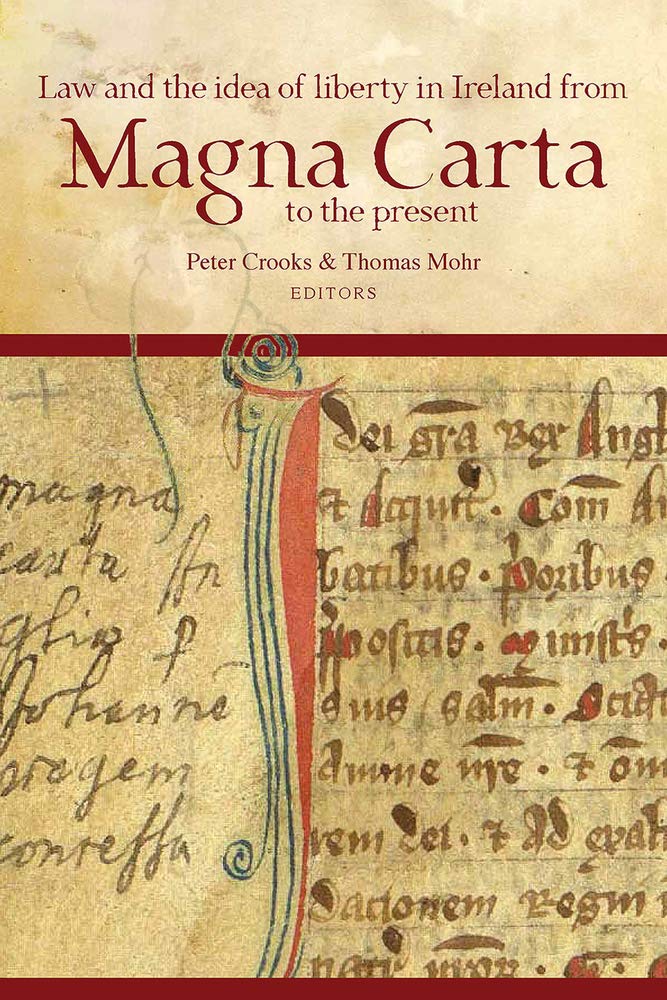 Law and the idea of liberty in Ireland from
Magna Carta
to the present
Peter Crooks & Thomas Mohr
EDITORS
magna
carta An
glia p
Johanne
regem
concessa
dei gra Rex Angl
et Aquit. Com A
batibus. Poribus
ppositis. minist's.
suis salm. Scia
Anime nre. et om
rem dei. et Ad exal
dacionem Regni n